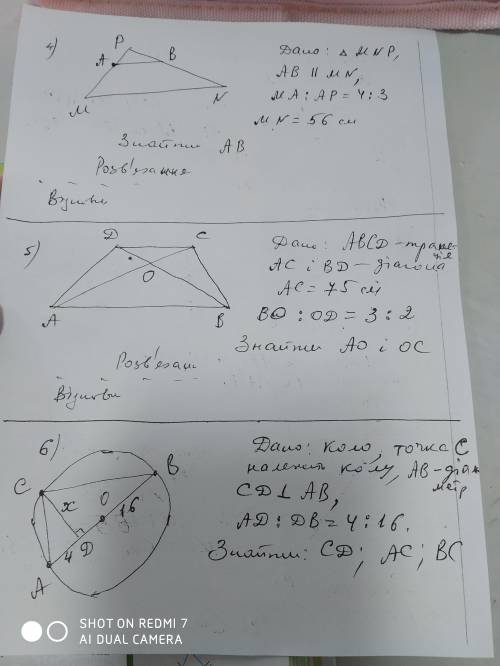 4)
P
A
B
M
N
Дано: △ MNP,
AB || MN,
MA : AP = 4 : 3
MN = 56 см
Знайти AB
Розв'язання
5)
D
C
O
A
B
Дано: ABCD – трапеція
AC і BD – діагона
AC = 75 см
BO : OD = 3 : 2
Знайти AO і OC
Розв'язан
6)
C
B
x
O
16
4
D
A
Дано: коло, точка C
належить колу, AB – діаметр
CD ⊥ AB,
AD : DB = 4 : 16.
Знайти: CD; AC; BC
SHOT ON REDMI 7
AI DUAL CAMERA